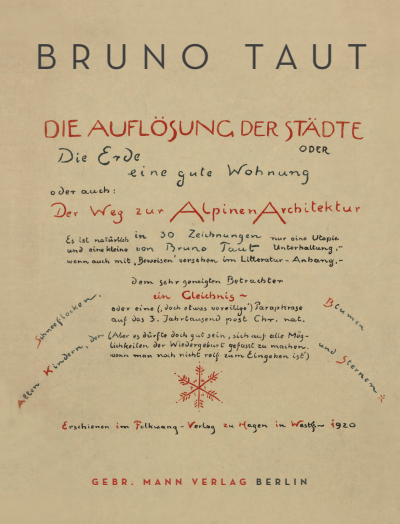 BRUNO TAUT
DIE AUFLÖSUNG DER STÄDTE
ODER
Die Erde
eine gute Wohnung
oder auch:
Der Weg zur Alpinen Architektur
Es ist natürlich in 30 Zeichnungen nur eine Utopie
und eine kleine von Bruno Taut Unterhaltung,-
wenn auch mit „Beweisen" versehen im Litteratur-Anhang,-
dem sehr geneigten Betrachter
ein Gleichnis~
oder eine (,doch etwas voreilige') Paraphrase
auf das 3. Jahrtausend post Chr. nat.
(Aber es dürfte doch gut sein, sich auf alle Mög-
lichkeiten der Wiedergeburt gefasst zu machen.
wenn man noch nicht reif zum Eingehen ist)
Allen Kindern, der
Schneeflocken,
Blumen
und Sternen
Erschienen im Folkwang-Verlag zu Hagen in Westf~ 1920
GEBR. MANN VERLAG BERLIN